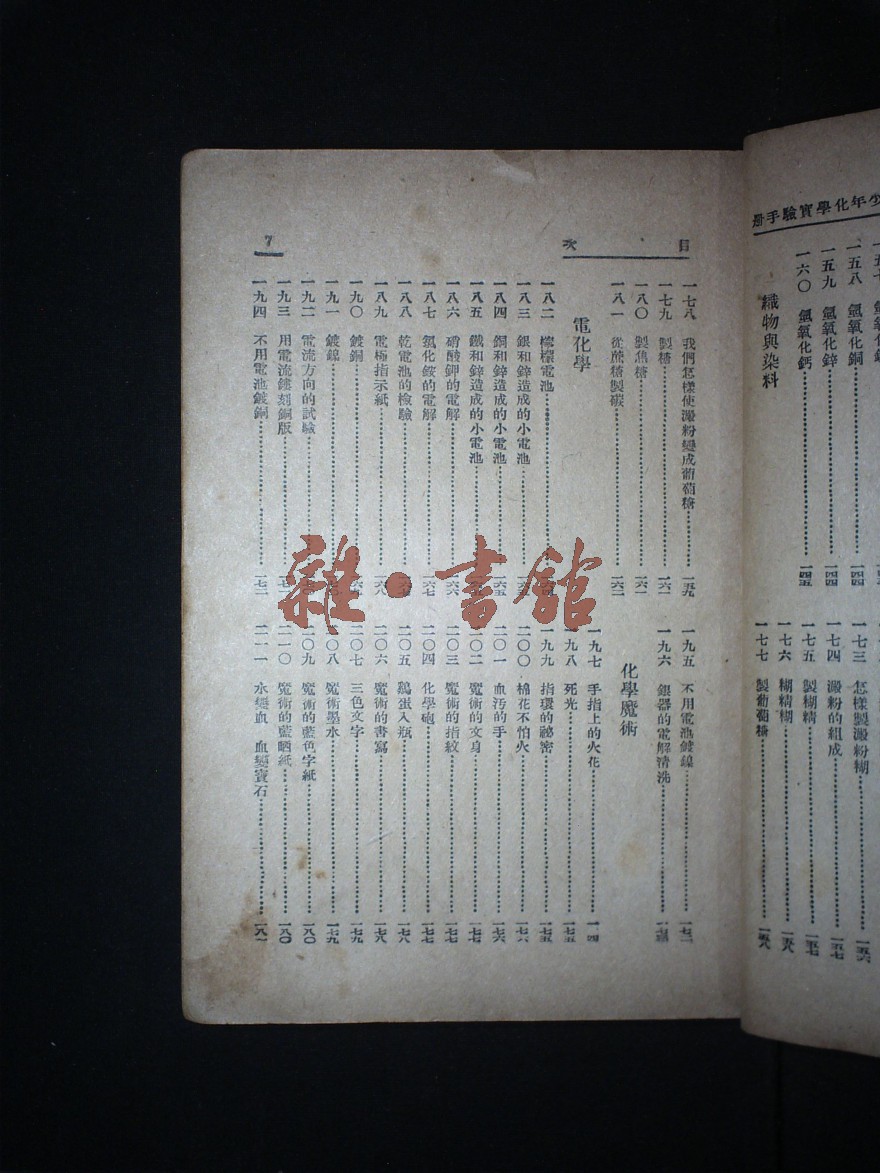 少年化學實驗手册
一五八 氫氧化銅 一四四
一五九 氫氧化鋅 一四四
一六〇 氫氧化鈣 一四五
織物與染料
一七三 怎樣製澱粉糊 一五六
一七四 澱粉的組成 一五七
一七五 製糊精 一五七
一七六 糊精糊 一五八
一七七 製葡萄糖 一五八
目次
7
一七八 我們怎樣使澱粉變成葡萄糖 一五九
一七九 製糖 一六一
一八〇 製焦糖 一六一
一八一 從蔗糖製碳 一六二
電化學
一八二 檸檬電池
一八三 銀和鋅造成的小電池
一八四 銅和鋅造成的小電池 一六五
一八五 鐵和鋅造成的小電池
一八六 碘酸鉀的電解 一六六
一八七 氯化銨的電解 一六七
一八八 乾電池的檢驗
一八九 電極指示紙 一六八
一九〇 鍍銅
一九一 鍍鎳
一九二 電流方向的試驗
一九三 用電流鏤刻銅版
一九四 不用電池鍍銅 一七二
一九五 不用電池鍍鎳 一七二
一九六 銀器的電解清洗
化學魔術
一九七 手指上的火花
一九八 死光 一七五
一九九 指環的祕密 一七五
二〇〇 棉花不怕火 一七六
二〇一 血污的手 一七六
二〇二 魔術的文身 一七七
二〇三 魔術的指紋 一七七
二〇四 化學砲 一七七
二〇五 鷄蛋入瓶 一七八
二〇六 魔術的書寫 一七八
二〇七 三色文字 一七九
二〇八 魔術墨水 一七九
二〇九 魔術的藍色字紙 一八〇
二一〇 魔術的藍晒紙 一八〇
二一一 水變血 血變寶石 一八一
雜·書館